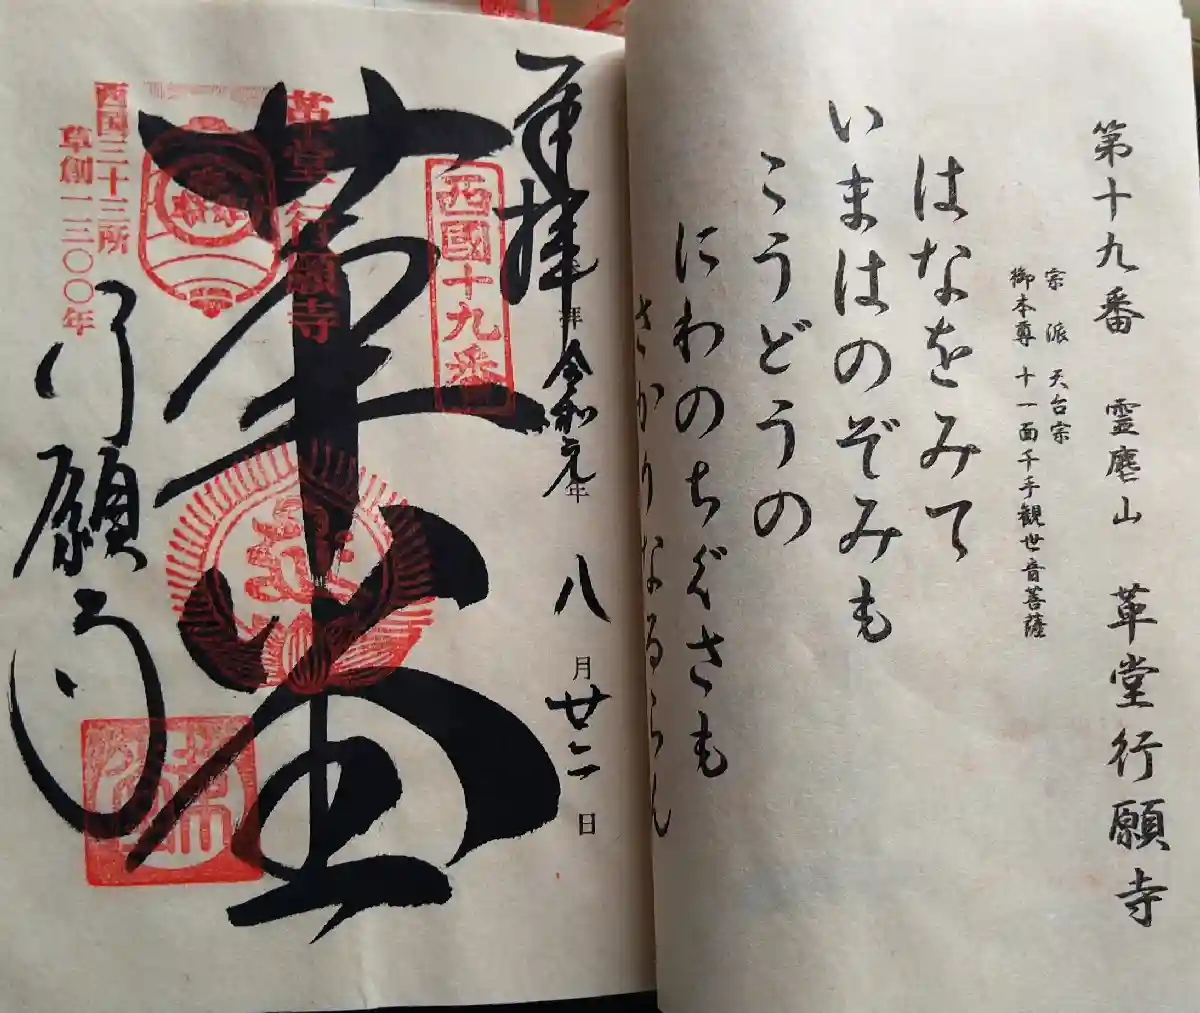 第十九番 霊麀山 革堂行願寺
宗派 天台宗
御本尊 十一面千手観世音菩薩
はなをみて
いまはのぞみも
こうどうの
にわのちぐさも
さかりなるらん
奉拝
拝 令和元年 八月廿二日
西國十九番
革堂
革堂行願寺
西国三十三所
草創一三〇〇年
行願寺